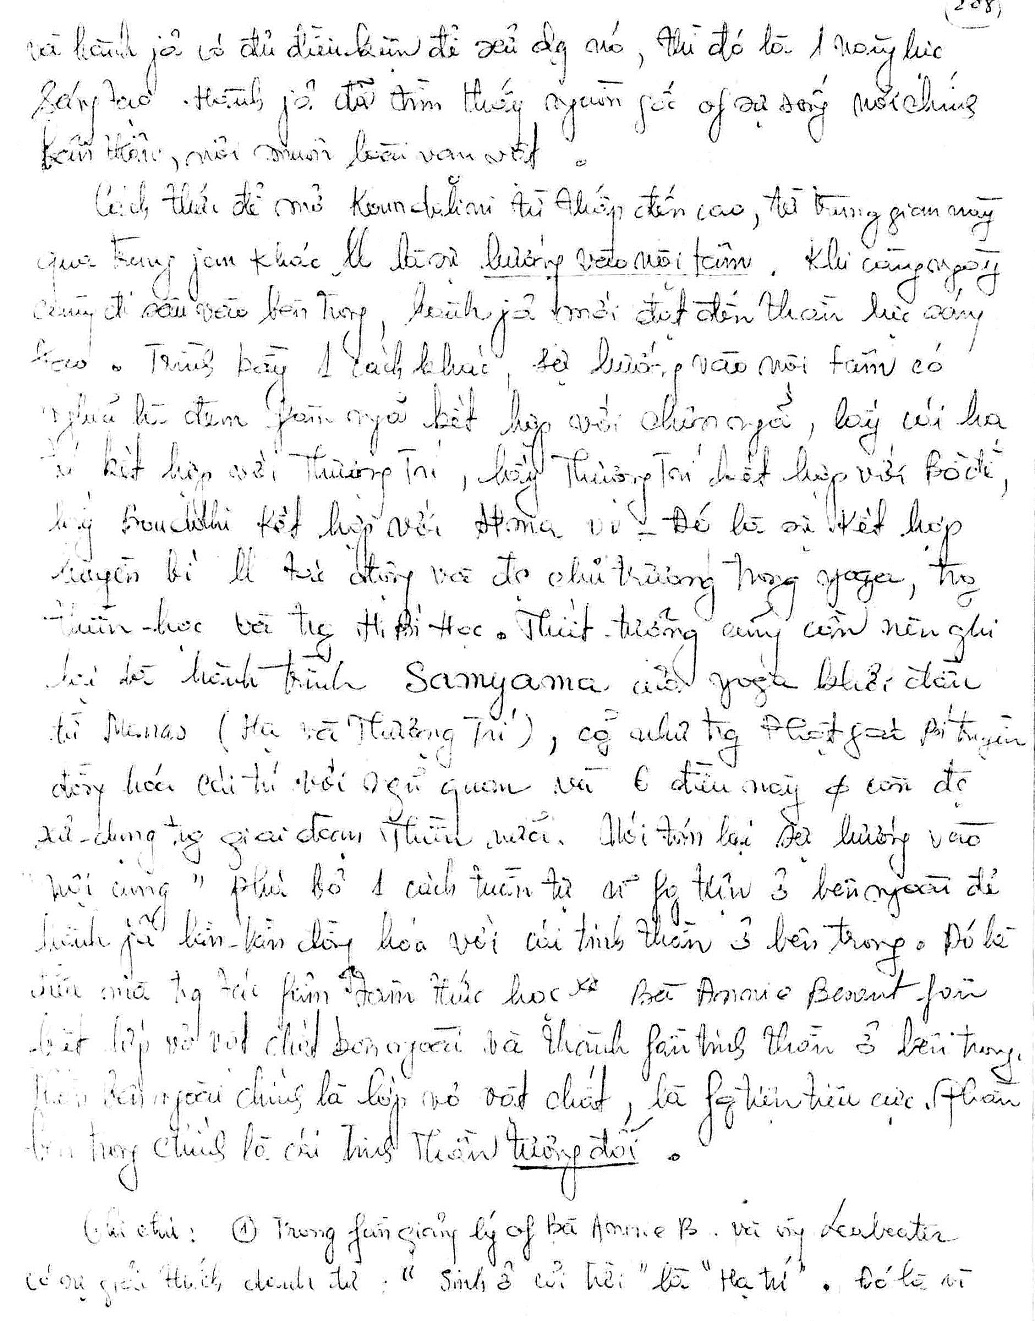 (208)
và hành jả có đủ điều kiện để sử dg nó, thì đó là 1 năng lực
sáng tạo. Hành jả đã tìm thấy nguồn gốc of sự sống nơi chính
bản thân, nơi muôn loài vạn vật.
Cách thức để mở Koundalini từ thấp đến cao, từ trung gian này
qua trung jan khác ll là sự hướng vào nội tâm. Khi càng ngày
càng đi sâu vào bên trong, hành jả mới đạt đến thần lực sáng
tạo. Trình bày 1 cách khác, sự hướng vào nội tâm có
nghĩa là đem fàm ngã kết hợp với chơn ngã, lấy cái hạ
trí kết hợp với Thượng Trí, lấy Thượng Trí kết hợp với Bồ đề,
lấy Bouddhi kết hợp với Atma vì - Đó là sự kết hợp
huyền bí ll tác động và đc chủ trương trong yoga, trg
thiền-học và trg H. Bí Học. Thiết tưởng cũng cần nên ghi
lại là hành trình Samyama của yoga khởi đầu
từ Manas (Hạ và Thượng Trí), cg như trg Phật jáo Bí truyền
đồng hóa cái trí với ngũ quan và 6 điều này ϕ còn đc
xử-dụng trg giai đoạn thiền nữa. Nói tóm lại sự hướng vào
"nội cung" phá bỏ 1 cách tuần tự n~ fg tiện ở bên ngoài để
hành jả lần-lần đồng hóa với cái tinh thần ở bên trong. Đó là
điều mà trg tác fẩm "Tâm thức học" Bà Annie Besant fân
biệt lớp vỏ vật chất bên ngoài và thành fần tinh thần ở bên trong.
Phần bên ngoài chính là lớp vỏ vật chất, là fg tiện tiêu cực. Phần
bên trong chính là cái Tinh Thần tương đối.
Ghi chú: ① Trong fần giảng lý of Bà Annie B. và ông Leadbeater
có sự giải thích danh từ: "Sinh ở cỏi trời" là "Hạ trí". Đó là vì